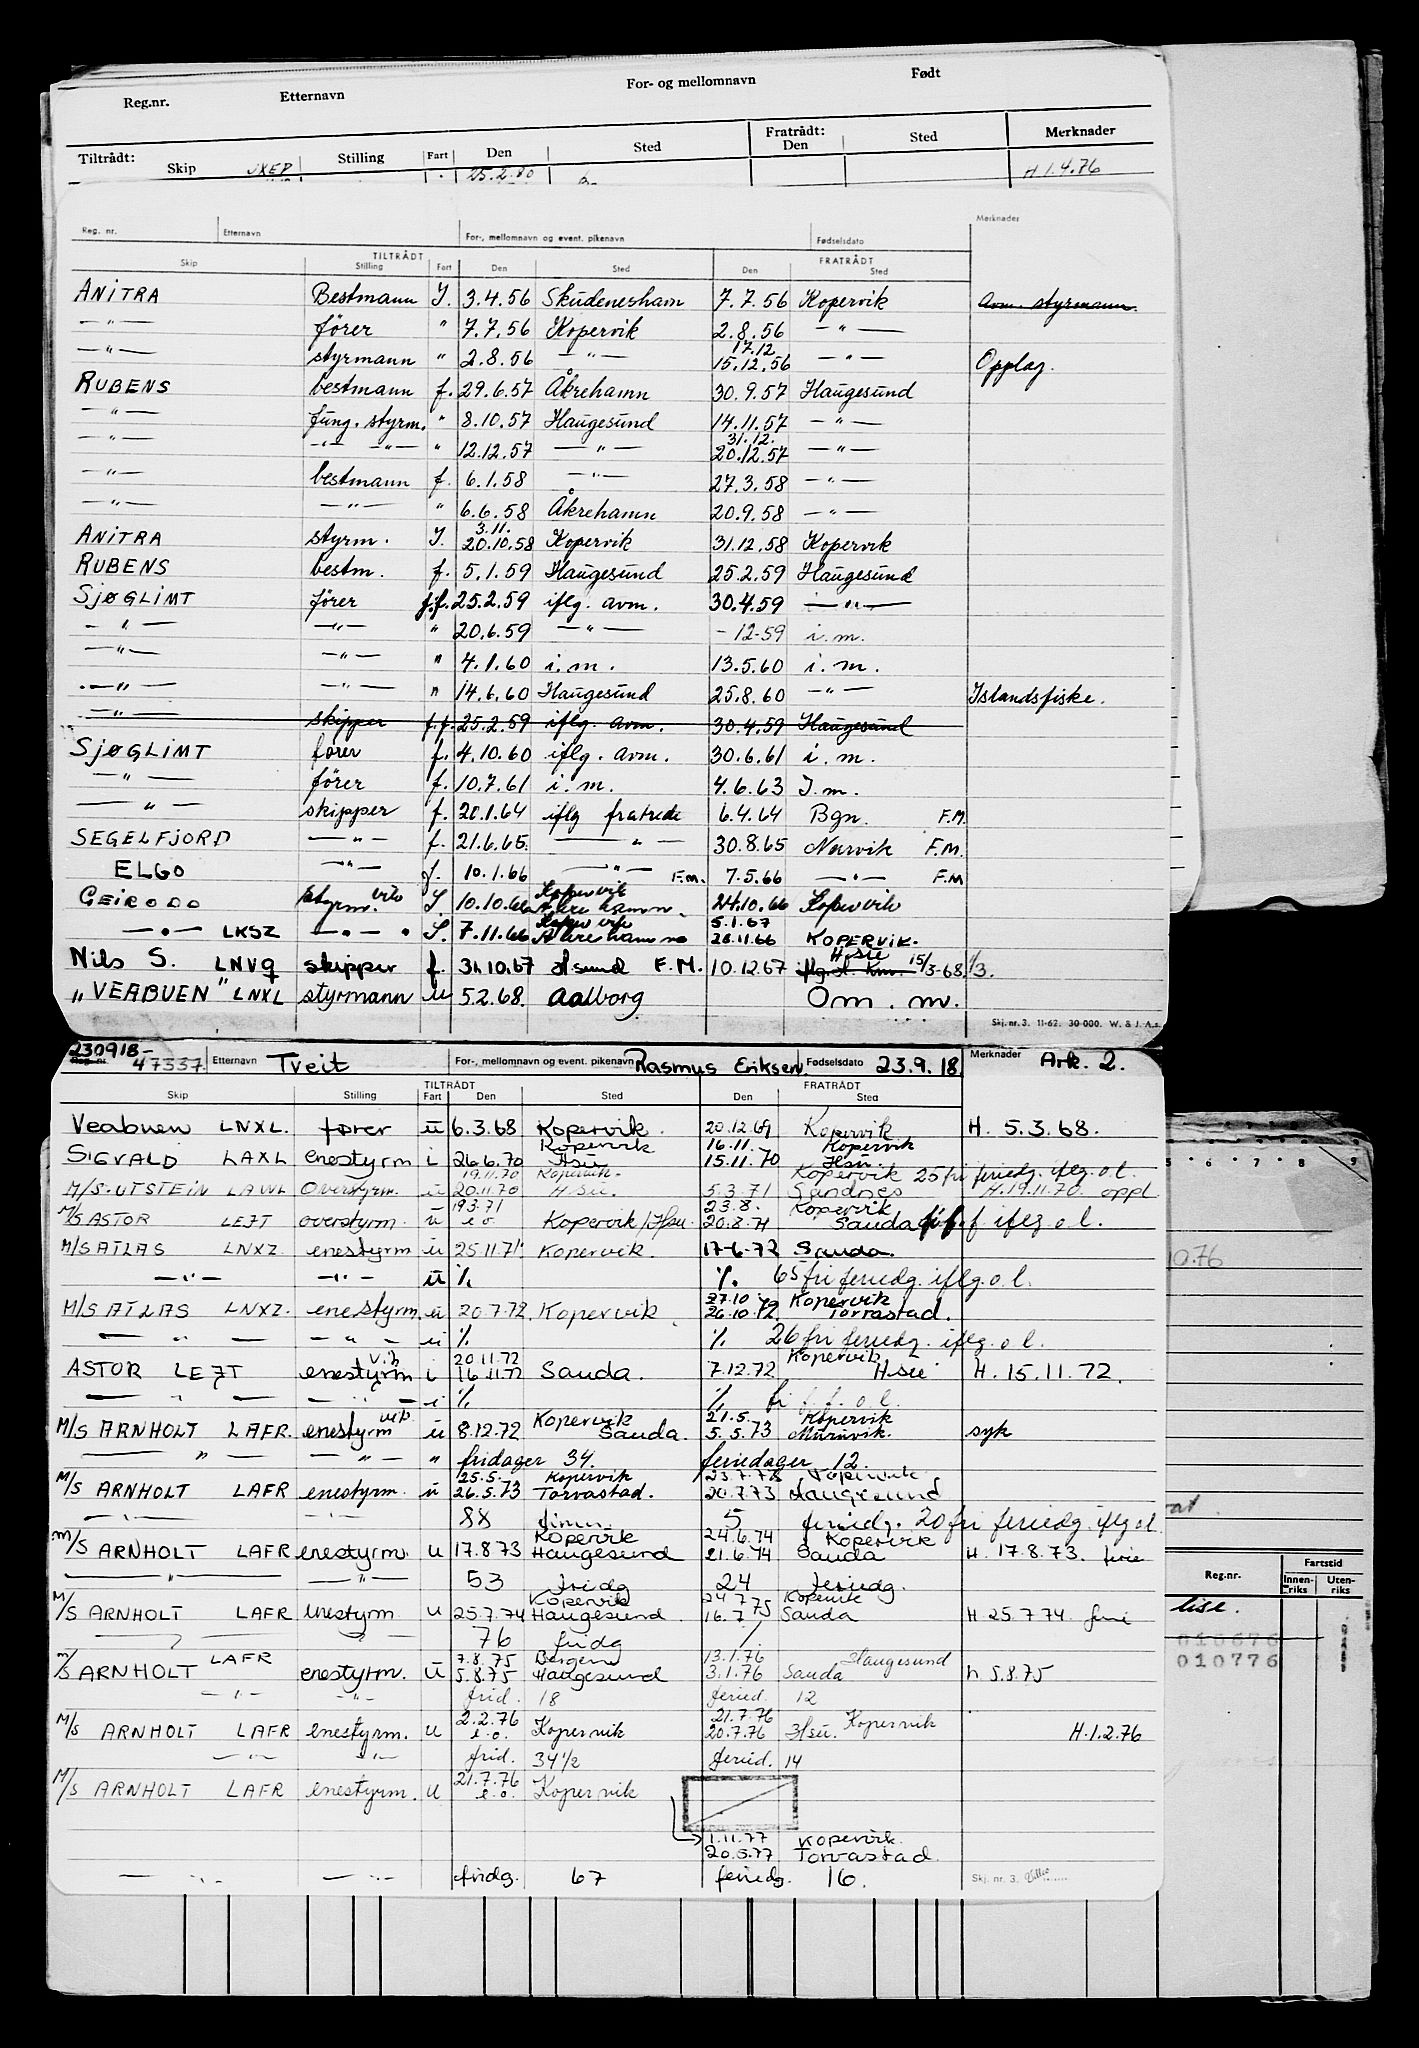 Reg.nr. Etternavn For- og mellomnavn Født
Tiltrådt: Skip Stilling Fart Den Sted Fratrådt: Den Sted Merknader
25.2.80 H 1.4.76
Reg. nr. Etternavn For-, mellomnavn og event. pikenavn Fødselsdato Merknader
TILTRÅDT FRATRÅDT
Skip Stilling Fart Den Sted Den Sted
ANITRA Bestmann I. 3.4.56 Skudeneshamn 7.7.56 Kopervik avm. styrmann.
—"— fører " 7.7.56 Kopervik 2.8.56 —"—
—"— styrmann " 2.8.56 —"— 17.12 15.12.56 —"— Opplag.
RUBENS bestmann f. 29.6.57 Åkrehamn 30.9.57 Haugesund
—"— fung. styrm. " 8.10.57 Haugesund 14.11.57 —"—
—"— —"— —"— " 12.12.57 —"— 31.12. 20.12.57 —"—
—"— bestmann f. 6.1.58 —"— 27.3.58 —"—
—"— —"— " 6.6.58 Åkrehamn 20.9.58 —"—
ANITRA styrm. I. 3.11. 20.10.58 Kopervik 31.12.58 Kopervik
RUBENS bestm. f. 5.1.59 Haugesund 25.2.59 Haugesund
SJØGLIMT fører f.f. 25.2.59 iflg. avm. 30.4.59 —"—
—"— —"— " 20.6.59 —"— -12-59 i.m.
—"— —"— " 4.1.60 i.m. 13.5.60 i.m.
—"— —"— " 14.6.60 Haugesund 25.8.60 —"— Islandsfiske.
—"— skipper f.f. 25.2.59 iflg. avm. 30.4.59 Haugesund
SJØGLIMT fører f. 4.10.60 iflg. avm. 30.6.61 i.m.
—"— fører f. 10.7.61 i.m. 4.6.63 I.m.
—"— skipper f. 20.1.64 iflg fratrede 6.4.64 Bgn. F.M.
SEGELFJORD —"— f. 21.6.65. —"— 30.8.65 Narvik F.M.
ELGO —"— f. 10.1.66 —"— F.M. 7.5.66 —"— F.M
GEIRODD styrm. vik I. 10.10.66 Kopervik Åkrehamn. 24.10.66 Kopervik
—"— LKSZ —"— I. 7.11.66 Kopervik Åkrehamn 5.1.67 26.11.66 KOPERVIK.
Nils S. LNVQ skipper f. 31.10.67 Hsund F.M. 10.12.67 H.sie 15/3-68 1/3.
"VEABUEN" LNXL styrmann u 5.2.68. Aalborg Om. m.
Skj. nr. 3. 11-62. 30 000. W. & J. A.s
230918-
Reg. nr. 47337 Etternavn Tveit For-, mellomnavn og event. pikenavn Rasmus Eriksen. Fødselsdato 23.9.18. Merknader Ark. 2.
TILTRÅDT FRATRÅDT
Skip Stilling Fart Den Sted Den Sted
Veabuen LNXL. fører u 6.3.68 Kopervik. 20.12.69 Kopervik H. 5.3.68.
SIGVALD LAXL enestyrm i 26.6.70 Kopervik Hsu 16.11. 15.11.70 Kopervik Hsu.
M/S. UTSTEIN LAWL Overstyrm. u 19.11.70 20.11.70 Kopervik H.su. 5.3.71 Kopervik Sandnes 25 fri feriedg. iflg. o.l. H. 19.11.70. oppl
M/S ASTOR LEJT overstyrm. u 19.3.71 e.o Kopervik/Hsu. 23.8. 20.8.71 Kopervik Sauda f iflg o.l.
M/S ATLAS LNXZ. enestyrm u 25.11.71 Kopervik. 17-6-72 Sauda.
—"— —"— u % % 65 fri feriedg. iflg. o.l.
M/S ATLAS LNXZ. enestyrm. u 20.7.72. Kopervik 27.10 26.10.72. Kopervik Torvastad.
—"— —"— u % % 26 fri feriedg. iflg. o.l.
ASTOR LEJT enestyrm vik i 20.11.72 16.11.72 Sauda. 7.12.72 Kopervik H.su H. 15.11.72.
—"— —"— i % % fri f. f. o.l.
M/S ARNHOLT LAFR. enestyrm vik. u 8.12.72 Kopervik Sauda. 21.5. 5.5.73 Kopervik syk
—"— —"— " fridager 34. feriedager 12.
M/S ARNHOLT LAFR enestyrm. u 25.5. 26.5.73 Kopervik Torvastad. 23.7.73 20.7.73 Kopervik Haugesund
—"— —"— 88 5 feriedg. 20 fri feriedg. iflg ol
M/S ARNHOLT LAFR enestyrm. u 17.8.73 Kopervik Haugesund 24.6.74 21.6.74 Kopervik Sauda H. 17.8.73. ferie
—"— —"— 53 fridg 24 feriedg.
M/S ARNHOLT LAFR enestyrm u 25.7.74 Kopervik Haugesund 24 7 75 16.7 Kopervik Sauda H 25.7.74. ferie
76 fridg
M/S ARNHOLT LAFR enestyrm. u 7.8.75 5.8.75 Bergen Haugesund 13.1.76 3.1.76 Haugesund Sauda h 5.8.75
—"— —"— frid. 18 feried. 12
M/S ARNHOLT LAFR enestyrm. u 2.2.76 e.o. Kopervik 21.7.76 20.7.76 Hsu. Kopervik H.1.2.76
—"— —"— frid. 34 1/2 feried. 14
M/S ARNHOLT LAFR enestyrm. u 21.7.76 e.o. Kopervik
1.11.77 Kopervik.
20.5.77 Torvastad.
—"— —"— fridg. 67 feriedg. 16.
Skj. nr. 3.
5 6 7 8 9
10.76
Reg.nr. Fartstid
Innenriks Utenriks
lise.
016676
010776